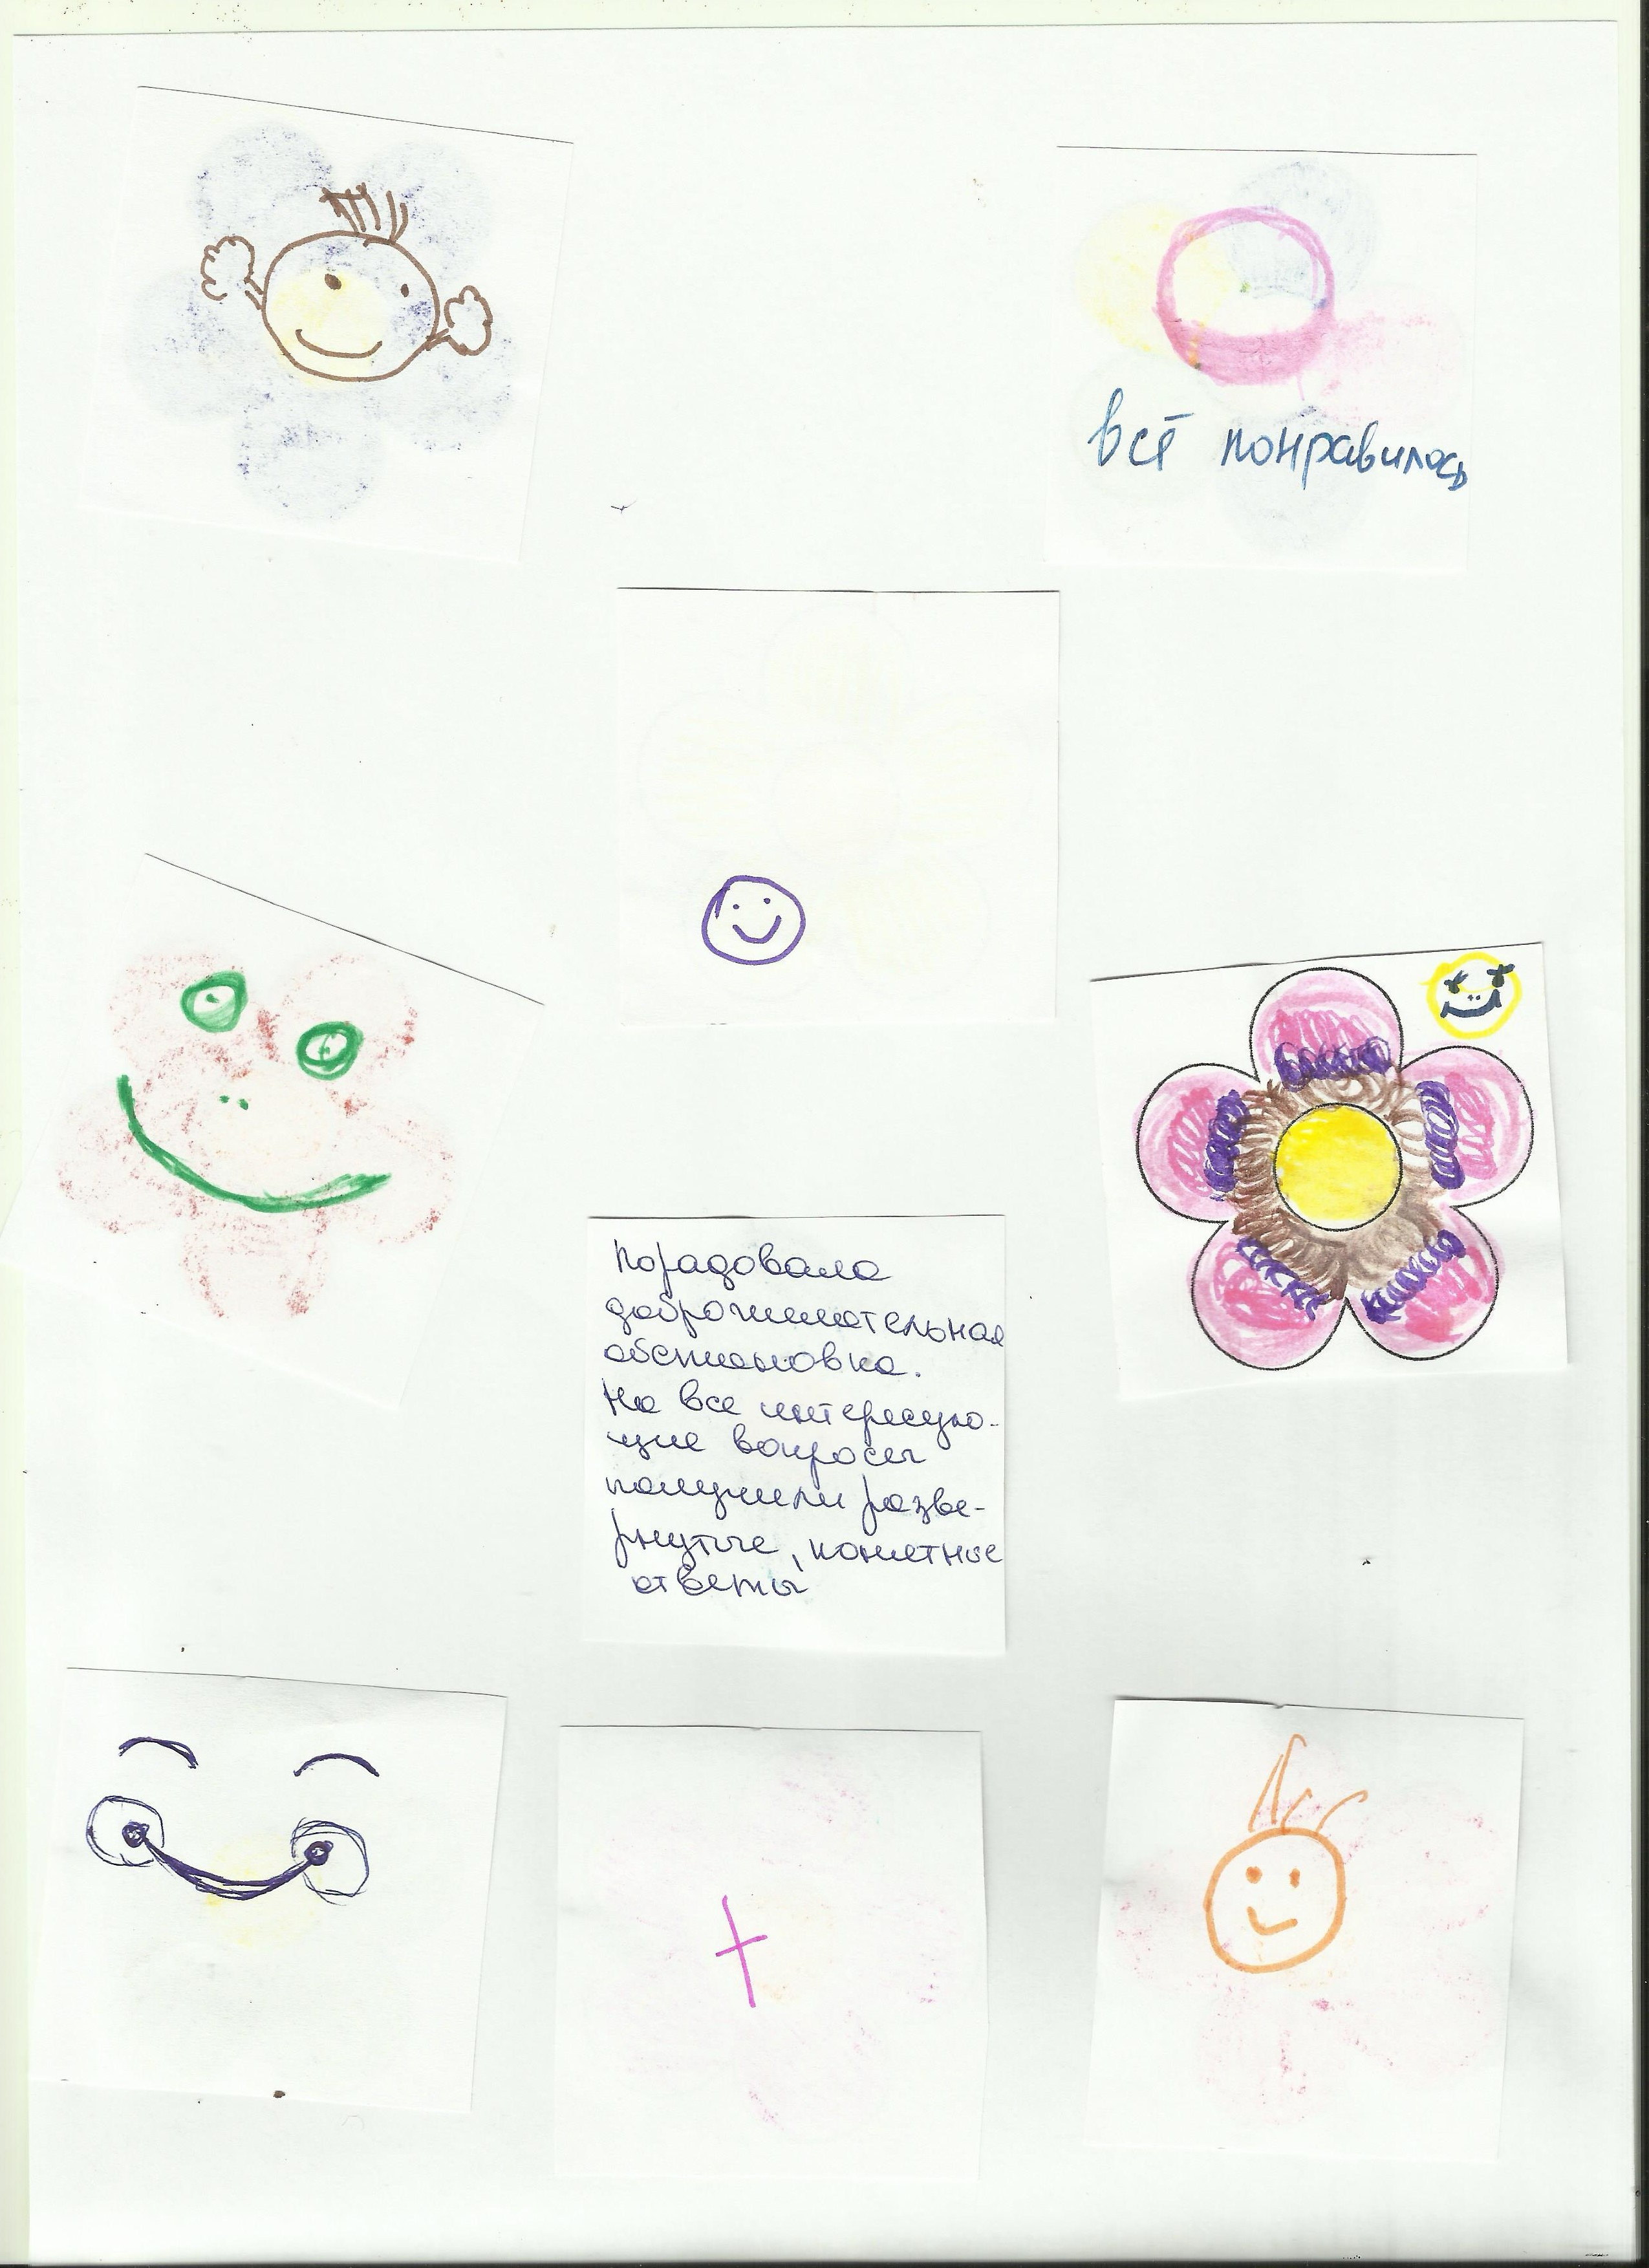 всё понравилось
Порадовала
доброжелательная
обстановка.
На все интересую-
щие вопросы
получили разве-
рнутые, понятные
ответы